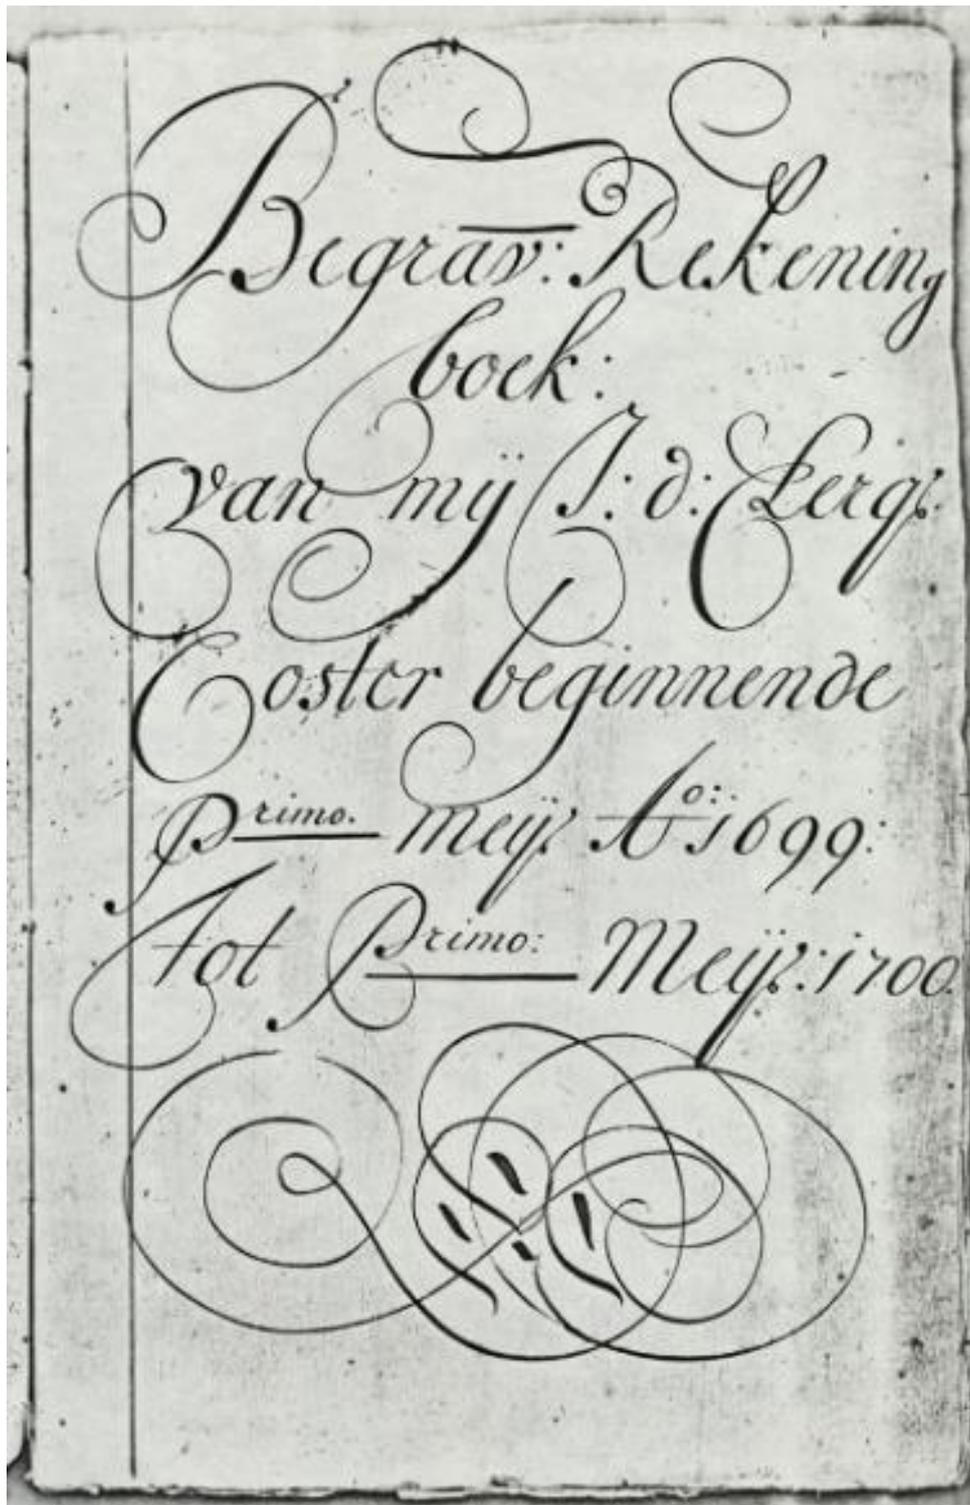 Begrav: Rekening
boek:
van mij J: d: Clerq:
Coster beginnende
Primo. meij: Ao: 1699:
Tot Primo: Meij: 1700.